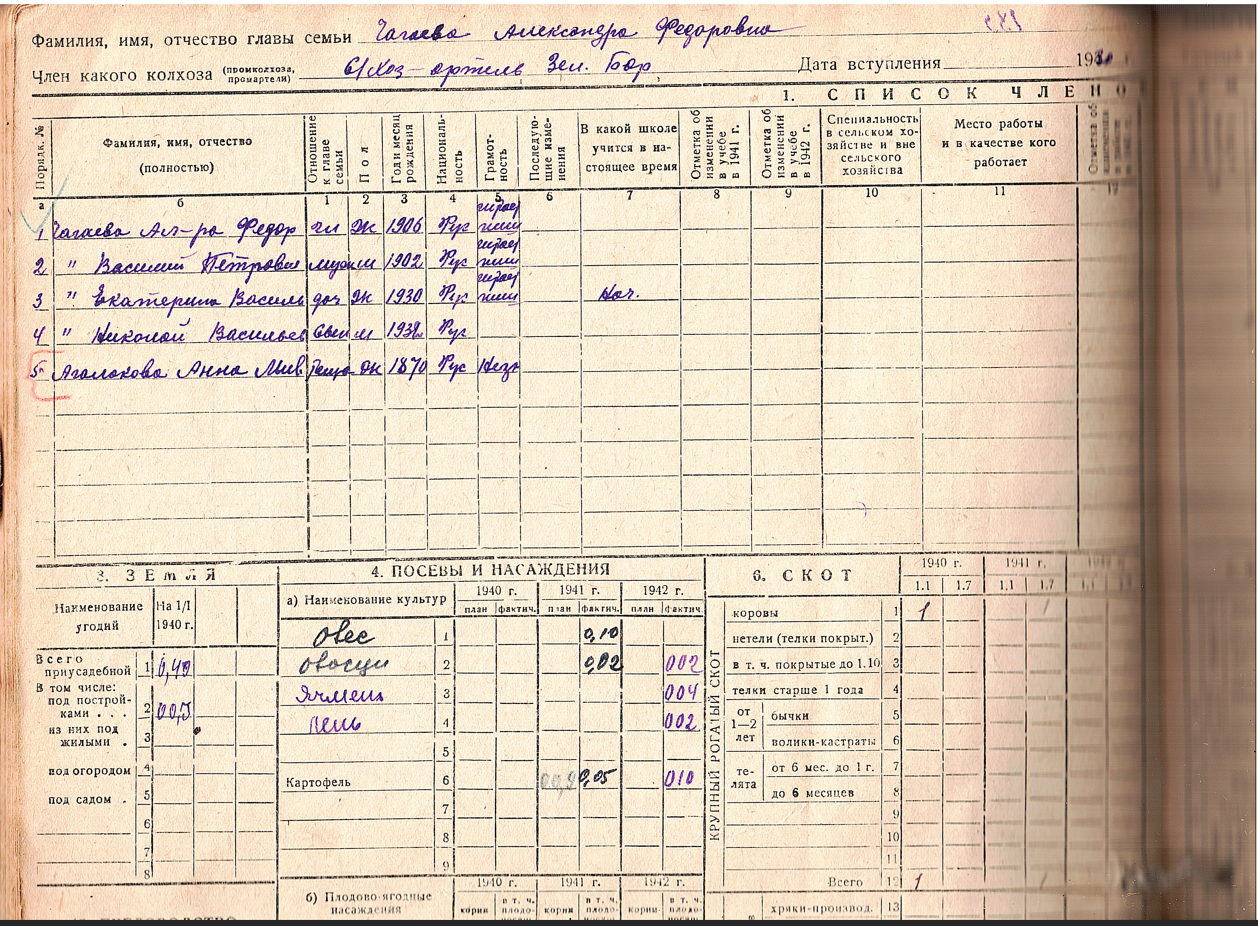 Фамилия, имя, отчество главы семьи Чагаева Александра Федоровна
Член какого колхоза (промколхоза, промартели) С/Хоз-артель Зел. Бор, Дата вступления 193
1. СПИСОК ЧЛЕНО
Порядк. № Фамилия, имя, отчество (полностью) Отношение к главе семьи Пол Год и месяц рождения Националь-ность Грамот-ность Последую-щие изме-нения В какой школе учится в на-стоящее время Отметка об изменении в учебе в 1941 г. Отметка об изменении в учебе в 1942 г. Специальность в сельском хо-зяйстве и вне сельского хозяйства Место работы и в качестве кого работает Отметка об
а б 1 2 3 4 5 6 7 8 9 10 11 12
1 Чагаева Ал-ра Федор гл Ж 1906 Рус читает пиш
2 " Василий Петрович муж м 1902 Рус читает пиш
3 " Екатерина Василь доч Ж 1930 Рус читает пиш Нач.
4 " Николой Васильев Сын м 1938 Рус
5 Анна теща Ж 1870 Рус Негр
3. ЗЕМЛЯ
Наименование угодий На 1/I 1940 г.
Всего приусадебной 1 0,49
В том числе:
под построй-ками . . . 2
из них под жилыми . 3
под огородом 4
под садом . 5
6
7
8
4. ПОСЕВЫ И НАСАЖДЕНИЯ
а) Наименование культур 1940 г. 1941 г. 1942 г.
план фактич. план фактич. план фактич.
Овес 1 0,10
Овощи 2 0,02 002
Ячмень 3 004
Лень 4 002
5
Картофель 6 0,05 010
7
8
9
б) Плодово-ягодные насаждения 1940 г. 1941 г. 1942 г.
корни в т. ч. плодо- корни в т. ч. плодо- корни в т. ч. плодо-
6. СКОТ 1940 г. 1941 г.
1.1 1.7 1.1 1.7 1.1
КРУПНЫЙ РОГАТЫЙ СКОТ
коровы 1 1
нетели (телки покрыт.) 2
в т. ч. покрытые до 1.10 3
телки старше 1 года 4
от 1—2 лет бычки 5
волики-кастраты 6
те-лята от 6 мес. до 1 г. 7
до 6 месяцев 8
9
10
11
Всего 12 1
хряки-производ. 13